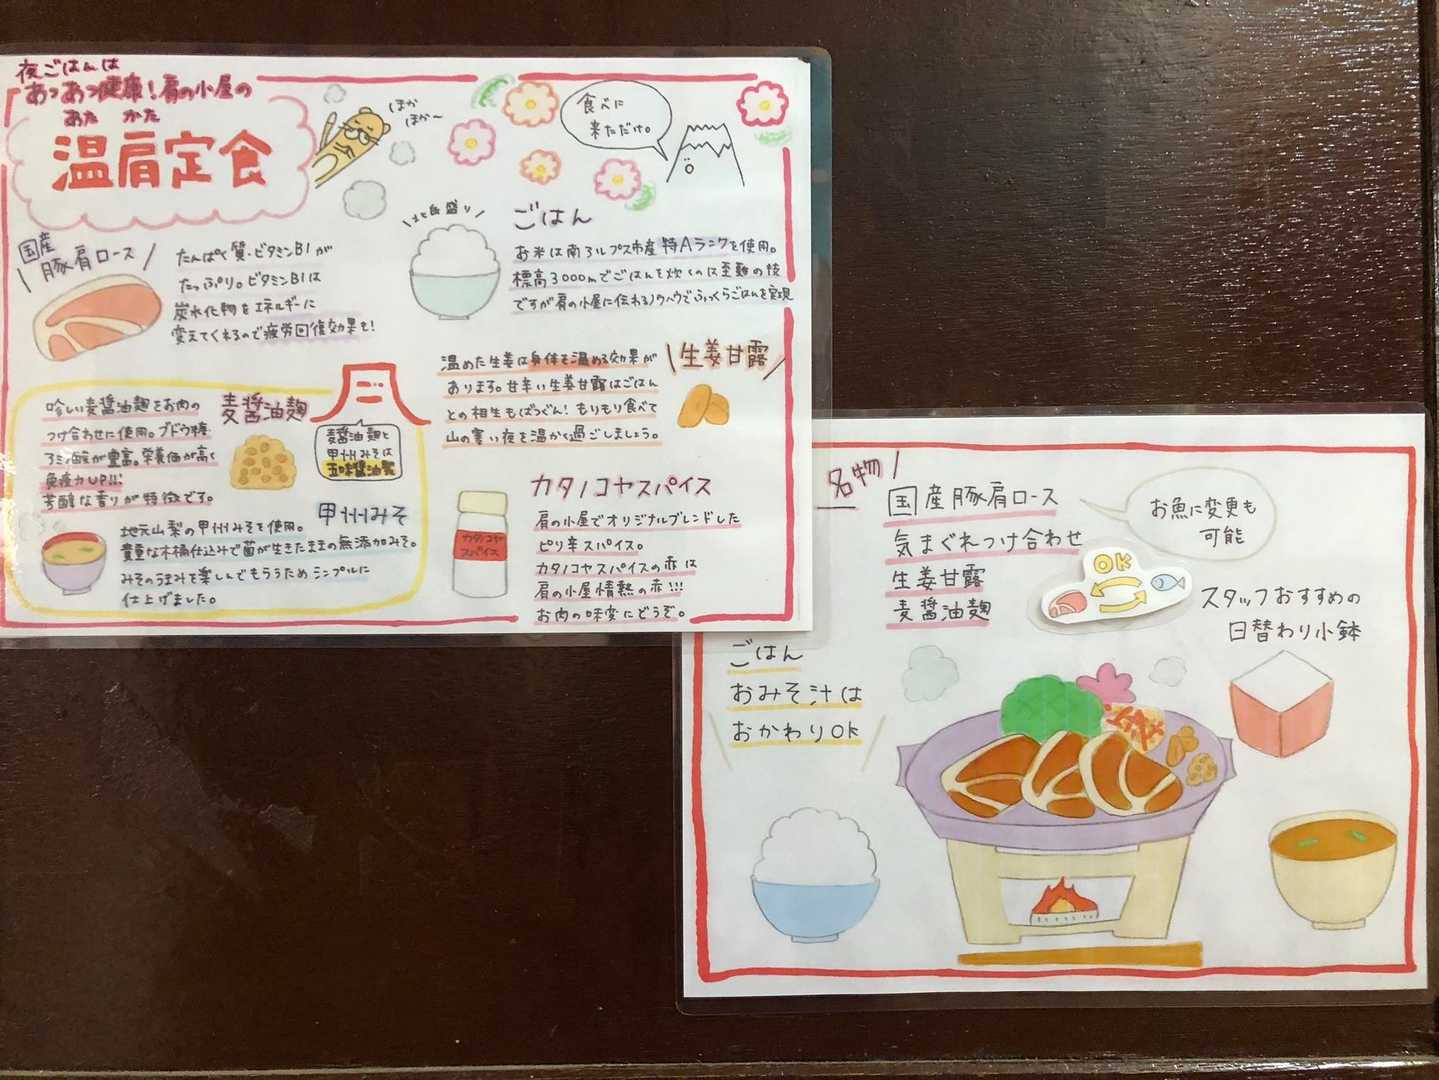 夜ごはんは
あつあつ健康!肩の小屋の
あた かた
温肩定食
ぽか
ぽか〜
食べに
来ただけ。
国産
豚肩ロース
たんぱく質・ビタミンB1が
たっぷり。ビタミンB1は
炭水化物をエネルギーに
変えてくれるので疲労回復効果も!
北岳盛り
ごはん
お米は南アルプス市産特Aランクを使用。
標高3000mでごはんを炊くのは至難の技
ですが肩の小屋に伝わるノウハウでふっくらごはんを実現
生姜甘露
温めた生姜は身体を温める効果が
あります。甘辛い生姜甘露はごはん
との相性もばつぐん!もりもり食べて
山の寒い夜を温かく過ごしましょう。
麦醤油麹
珍しい麦醤油麹をお肉の
つけ合わせに使用。ブドウ糖
アミノ酸が豊富。栄養価が高く
免疫力UP!!!
芳醇な香りが特徴です。
麦醤油麹と
甲州みそは
五味醤油製
甲州みそ
地元山梨の甲州みそを使用。
貴重な木桶仕込みで菌が生きたままの無添加みそ。
みそのうまみを楽しんでもらうためシンプルに
仕上げました。
カタノコヤスパイス
カタノコヤ
スパイス
肩の小屋でオリジナルブレンドした
ピリ辛スパイス。
カタノコヤスパイスの赤は
肩の小屋情熱の赤!!!
お肉の味変にどうぞ。
名物
国産豚肩ロース
気まぐれつけ合わせ
生姜甘露
麦醤油麹
お魚に変更も
可能
OK
スタッフおすすめの
日替わり小鉢
ごはん
おみそ汁は
おかわりOK